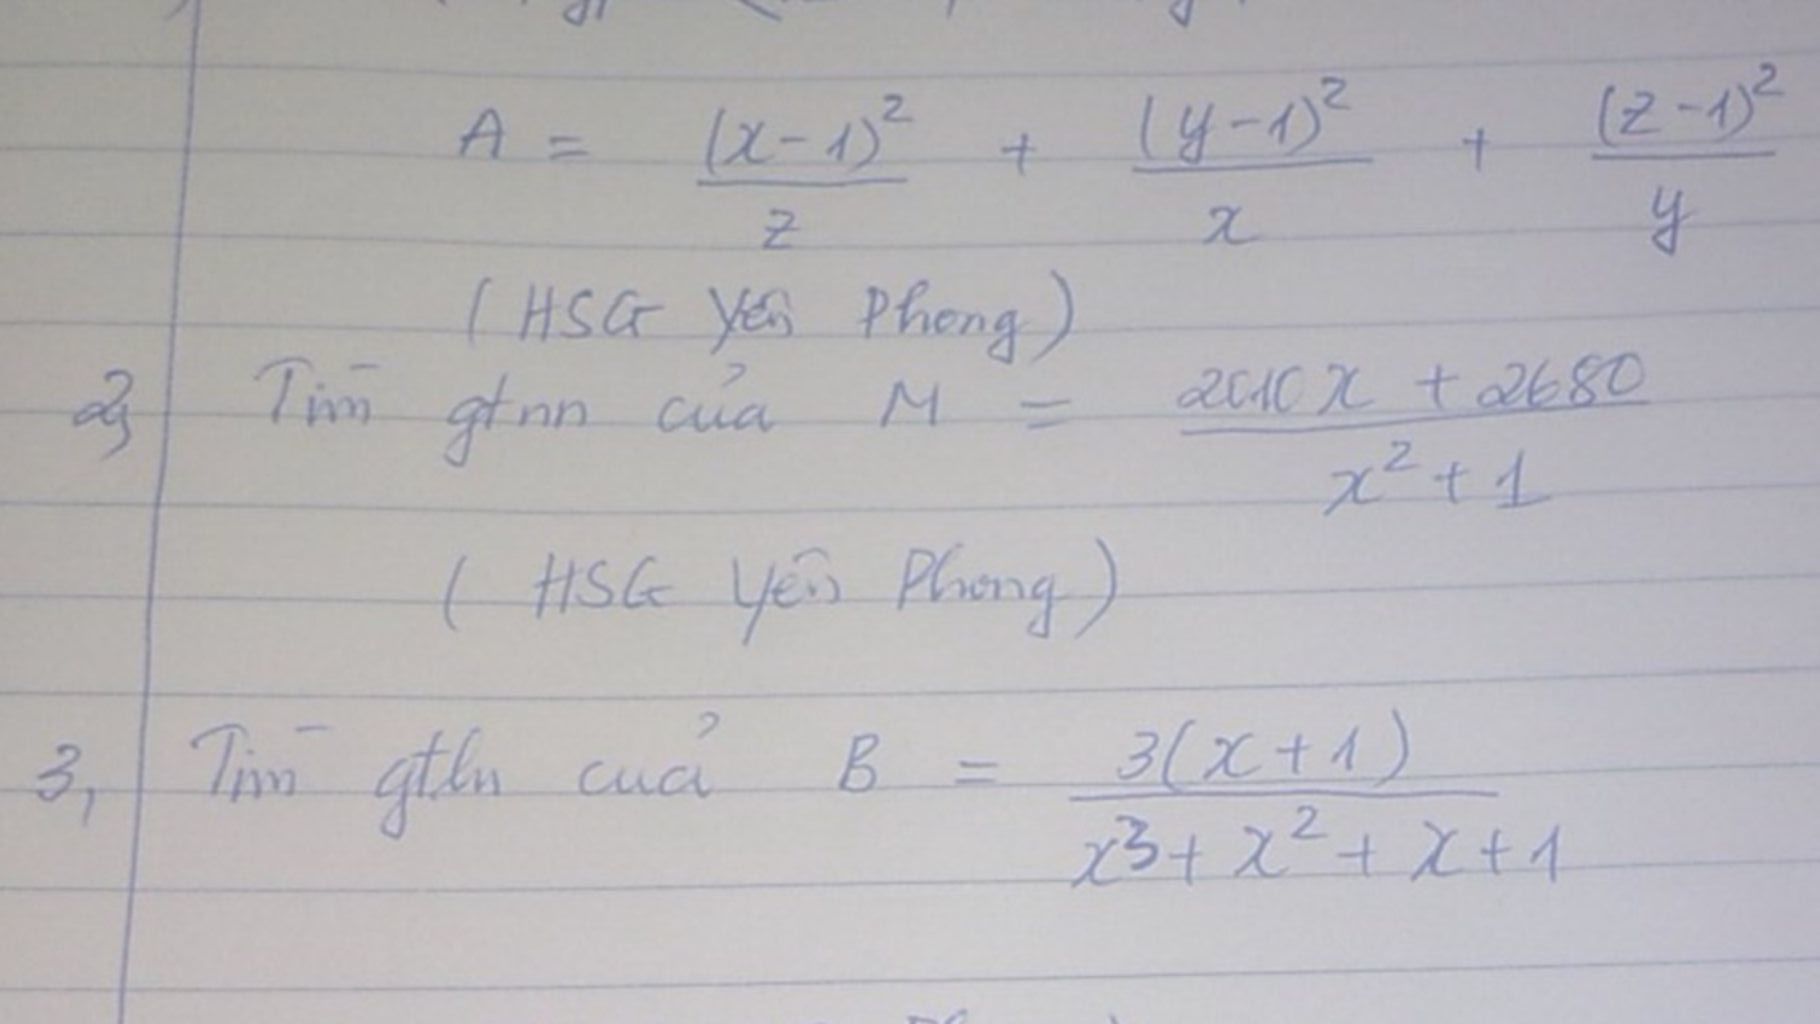 A = (x-1)²/z + (y-1)²/x + (z-1)²/y
(HSG Yên Phong)
2, Tìm gtnn của M = (2010x + 2680)/(x² + 1)
(HSG Yên Phong)
3, Tìm gtln của B = 3(x+1)/(x³ + x² + x + 1)